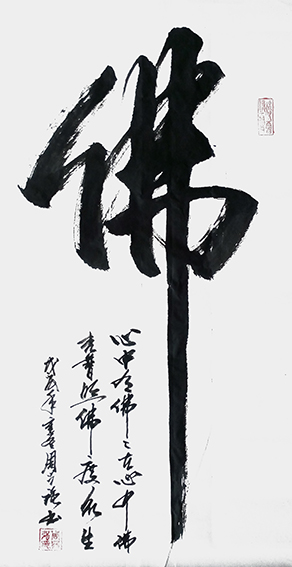 佛
心中有佛々在心中佛
光普照佛度众生
戊戌年 周 书